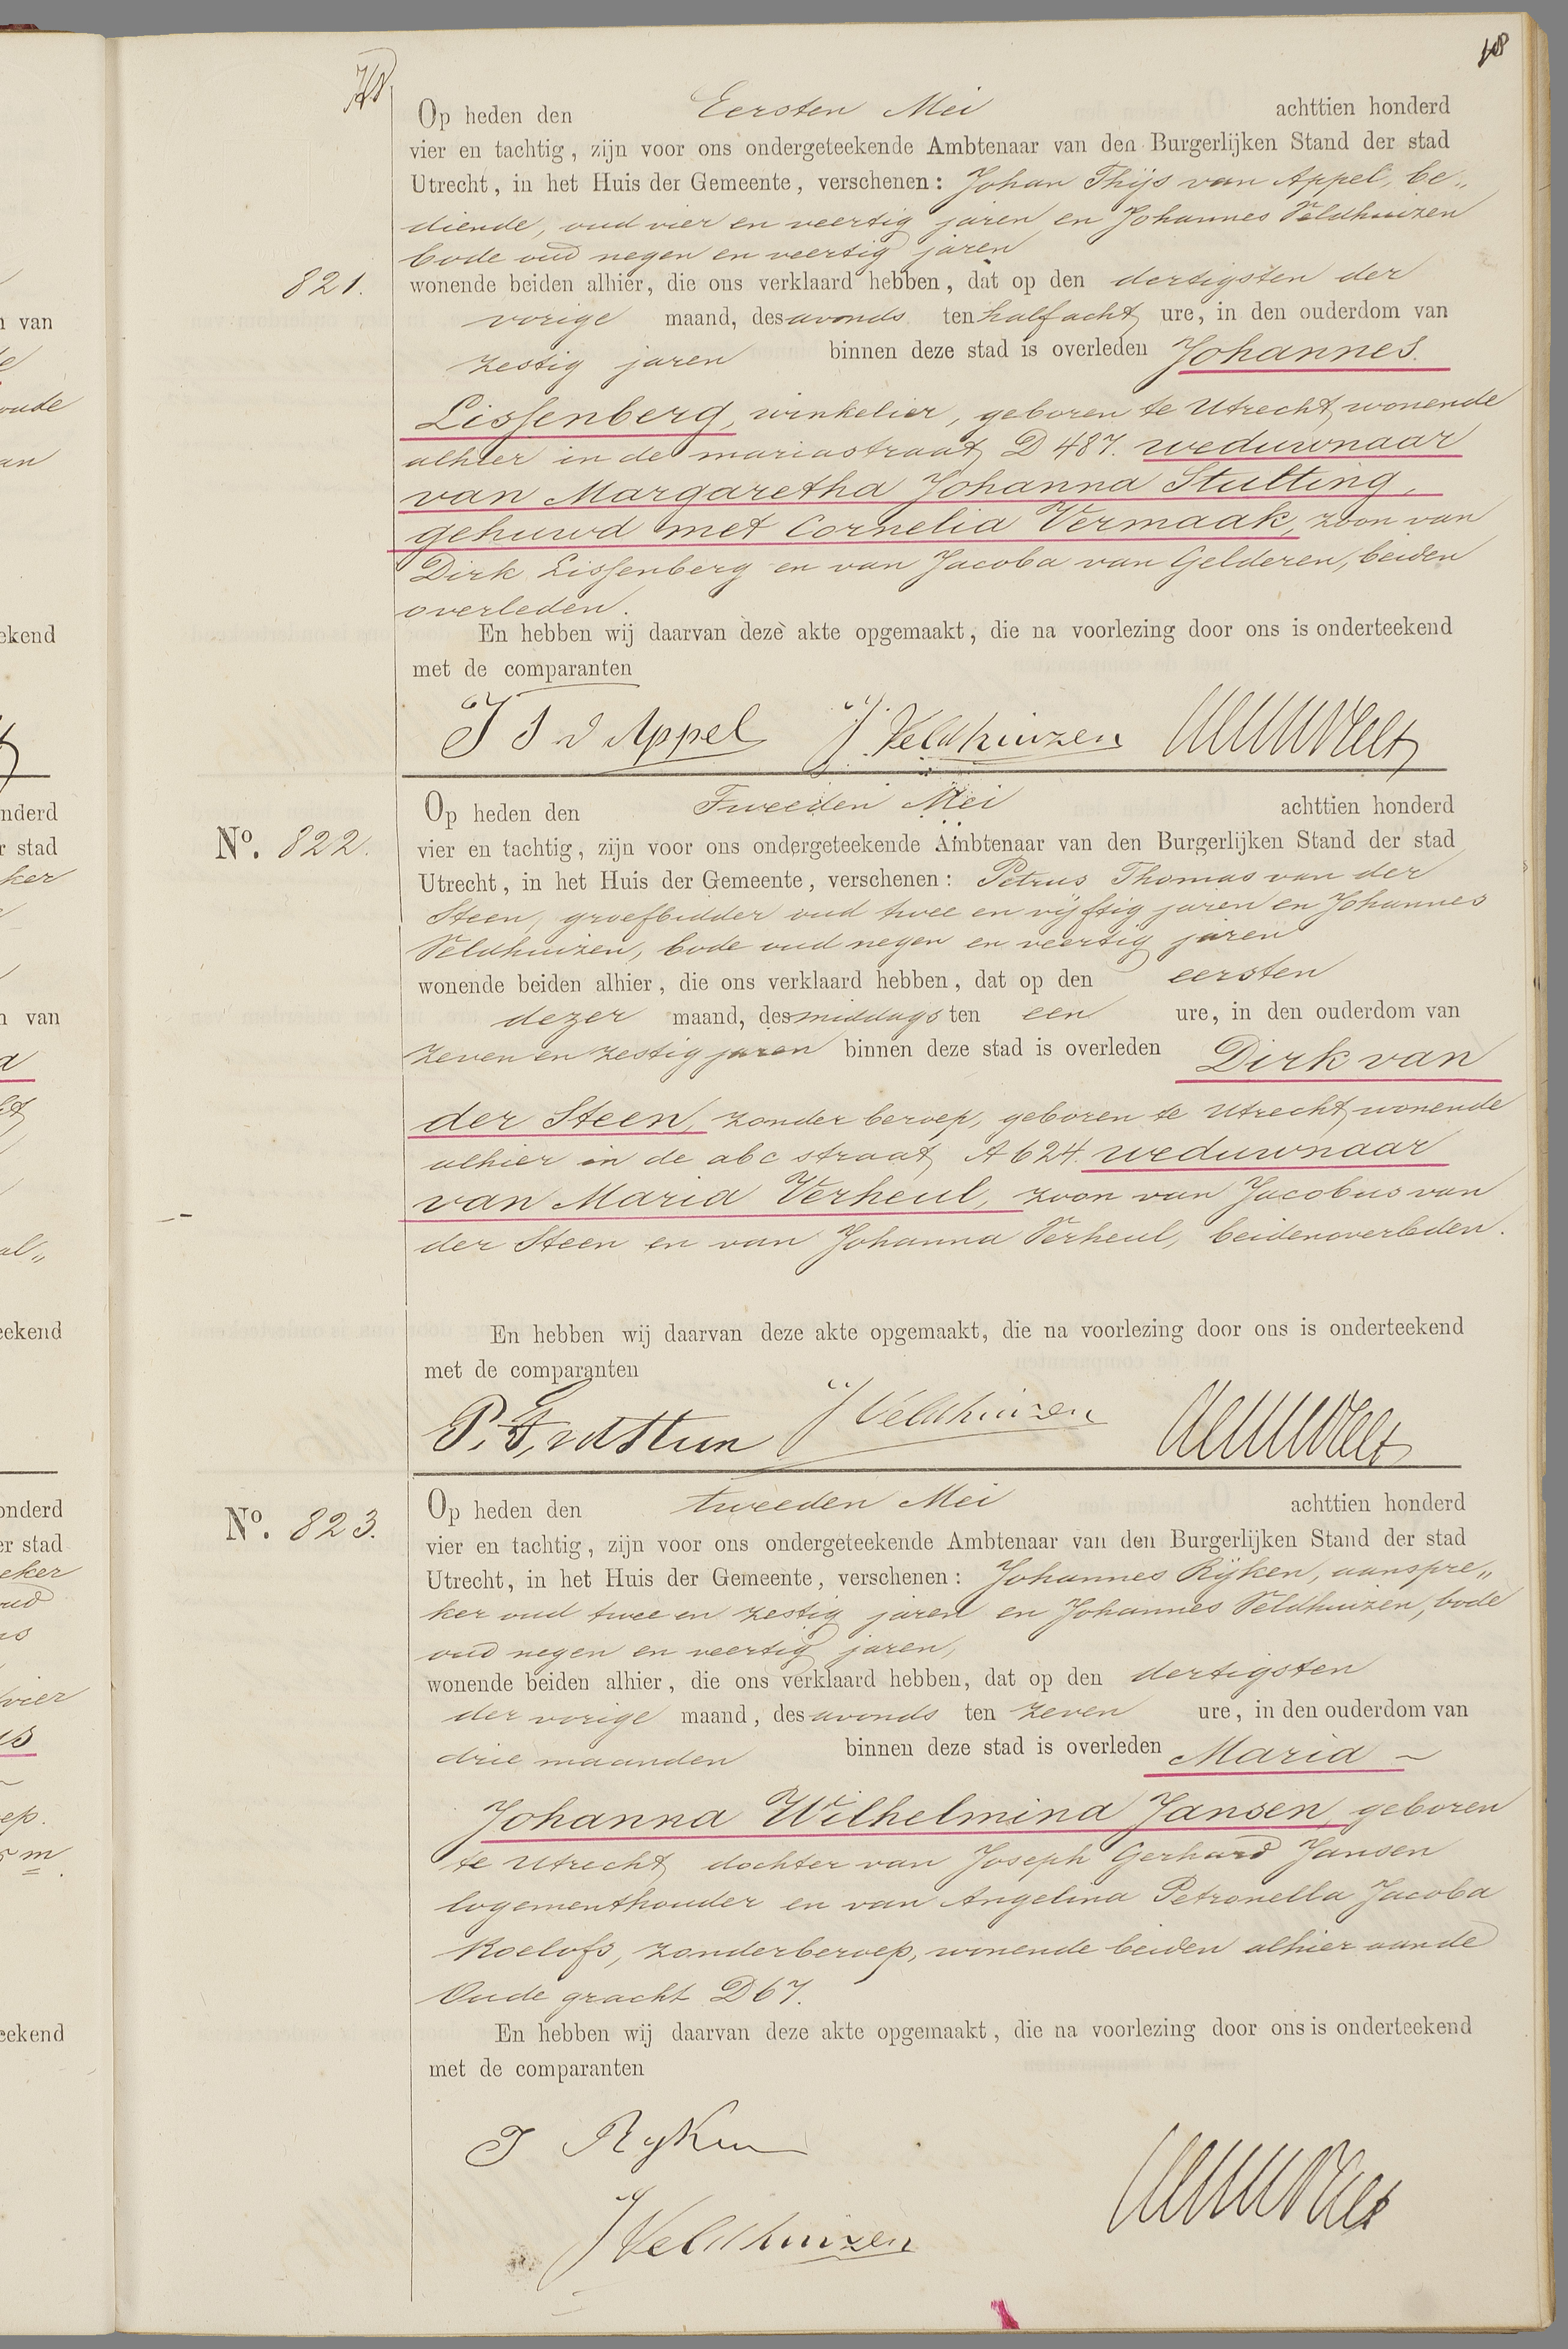 Op heden den Eersten Mei achttien honderd
vier en tachtig, zijn voor ons ondergeteekende Ambtenaar van den Burgerlijken Stand der stad
Utrecht, in het Huis der Gemeente, verschenen: Johan Thijs van Appel, be„
diende, oud vier en veertig jaren en Johannes Veldhuizen
bode oud negen en veertig jaren
821.
wonende beiden alhier, die ons verklaard hebben, dat op den dertigsten der
vorige maand, des avonds ten half acht ure, in den ouderdom van
zestig jaren binnen deze stad is overleden Johannes
Lissenberg, winkelier, geboren te Utrecht, wonende
alhier in de mariastraat D 487. weduwnaar
van Margaretha Johanna Stulting,
gehuwd met Cornelia Vermaak, zoon van
Dirk Lissenberg en van Jacoba van Gelderen, beiden
overleden.
En hebben wij daarvan deze akte opgemaakt, die na voorlezing door ons is onderteekend
met de comparanten
J T v Appel J Veldhuizen
Op heden den Tweeden Mei achttien honderd
No. 822.
vier en tachtig, zijn voor ons ondergeteekende Ambtenaar van den Burgerlijken Stand der stad
Utrecht, in het Huis der Gemeente, verschenen: Petrus Thomas van der
Steen, groefbidder oud twee en vijftig jaren en Johannes
Veldhuizen, bode oud negen en veertig jaren
wonende beiden alhier, die ons verklaard hebben, dat op den eersten
dezer maand, des middags ten een ure, in den ouderdom van
zeven en zestig jaren binnen deze stad is overleden Dirk van
der Steen, zonder beroep, geboren te Utrecht, wonende
alhier in de abc straat A 624. weduwnaar
van Maria Verheul, zoon van Jacobus van
der Steen en van Johanna Verheul, beiden overleden.
En hebben wij daarvan deze akte opgemaakt, die na voorlezing door ons is onderteekend
met de comparanten
P. T. vd Steen J Veldhuizen
Op heden den tweeden Mei achttien honderd
No. 823.
vier en tachtig, zijn voor ons ondergeteekende Ambtenaar van den Burgerlijken Stand der stad
Utrecht, in het Huis der Gemeente, verschenen: Johannes Rijken, aanspre„
ker oud twee en zestig jaren en Johannes Veldhuizen, bode
oud negen en veertig jaren,
wonende beiden alhier, die ons verklaard hebben, dat op den dertigsten
der vorige maand, des avonds ten zeven ure, in den ouderdom van
drie maanden binnen deze stad is overleden Maria
Johanna Wilhelmina Jansen, geboren
te Utrecht, dochter van Joseph Gerhard Jansen
logementhouder en van Angelina Petronella Jacoba
Roelofs, zonder beroep, wonende beiden alhier aan de
Oude gracht D 67.
En hebben wij daarvan deze akte opgemaakt, die na voorlezing door ons is onderteekend
met de comparanten
J Ryken
J Veldhuizen